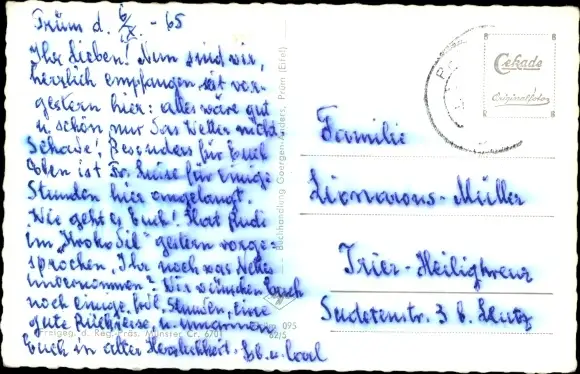 Prüm d. 6/IX. - 65
Ihr Lieben! Nun sind wir,
herzlich empfangen, seit vor-
gestern hier: alles wäre gut
u. schön nur das Wetter nicht.
Schade! Besonders für Euch
Eben ist Fr. Luise für einige
Stunden hier angelangt.
Wie geht es Euch! Hat Rudi
im "Krokodil" gestern vorge-
sprochen, Ihr noch was Nettes
unternommen? Wir wünschen Euch
noch einige fröhl. Stunden, eine
gute Rückreise, u. umarmen
Euch in alter Herzlichkeit.
Buchhandlung Goergen-Anders, Prüm (Eifel)
Freigeg. d. Reg.-Präs. Münster Cr. 6701
095
62/5
Cekade
Originalfoto
Familie
Müller
Trier-Heiligkreuz
Sudetenstr. 3 b.